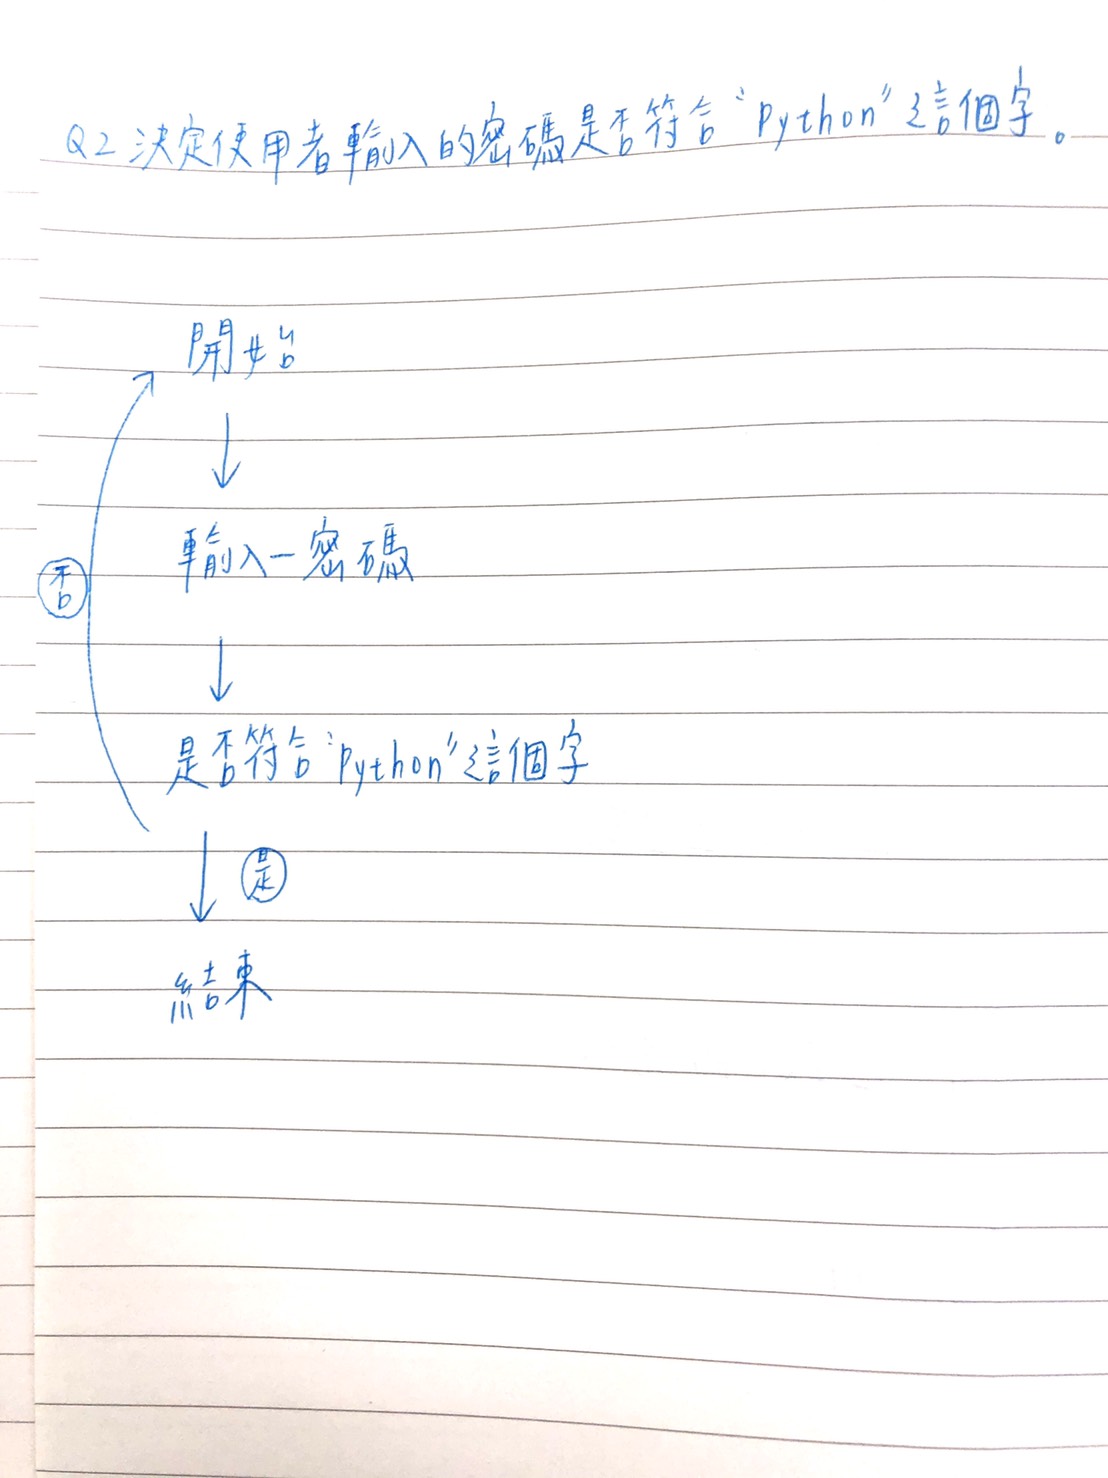 Q2 決定使用者輸入的密碼是否符合"Python"這個字。
開始
輸入一密碼
否
是否符合"Python"這個字
是
結束